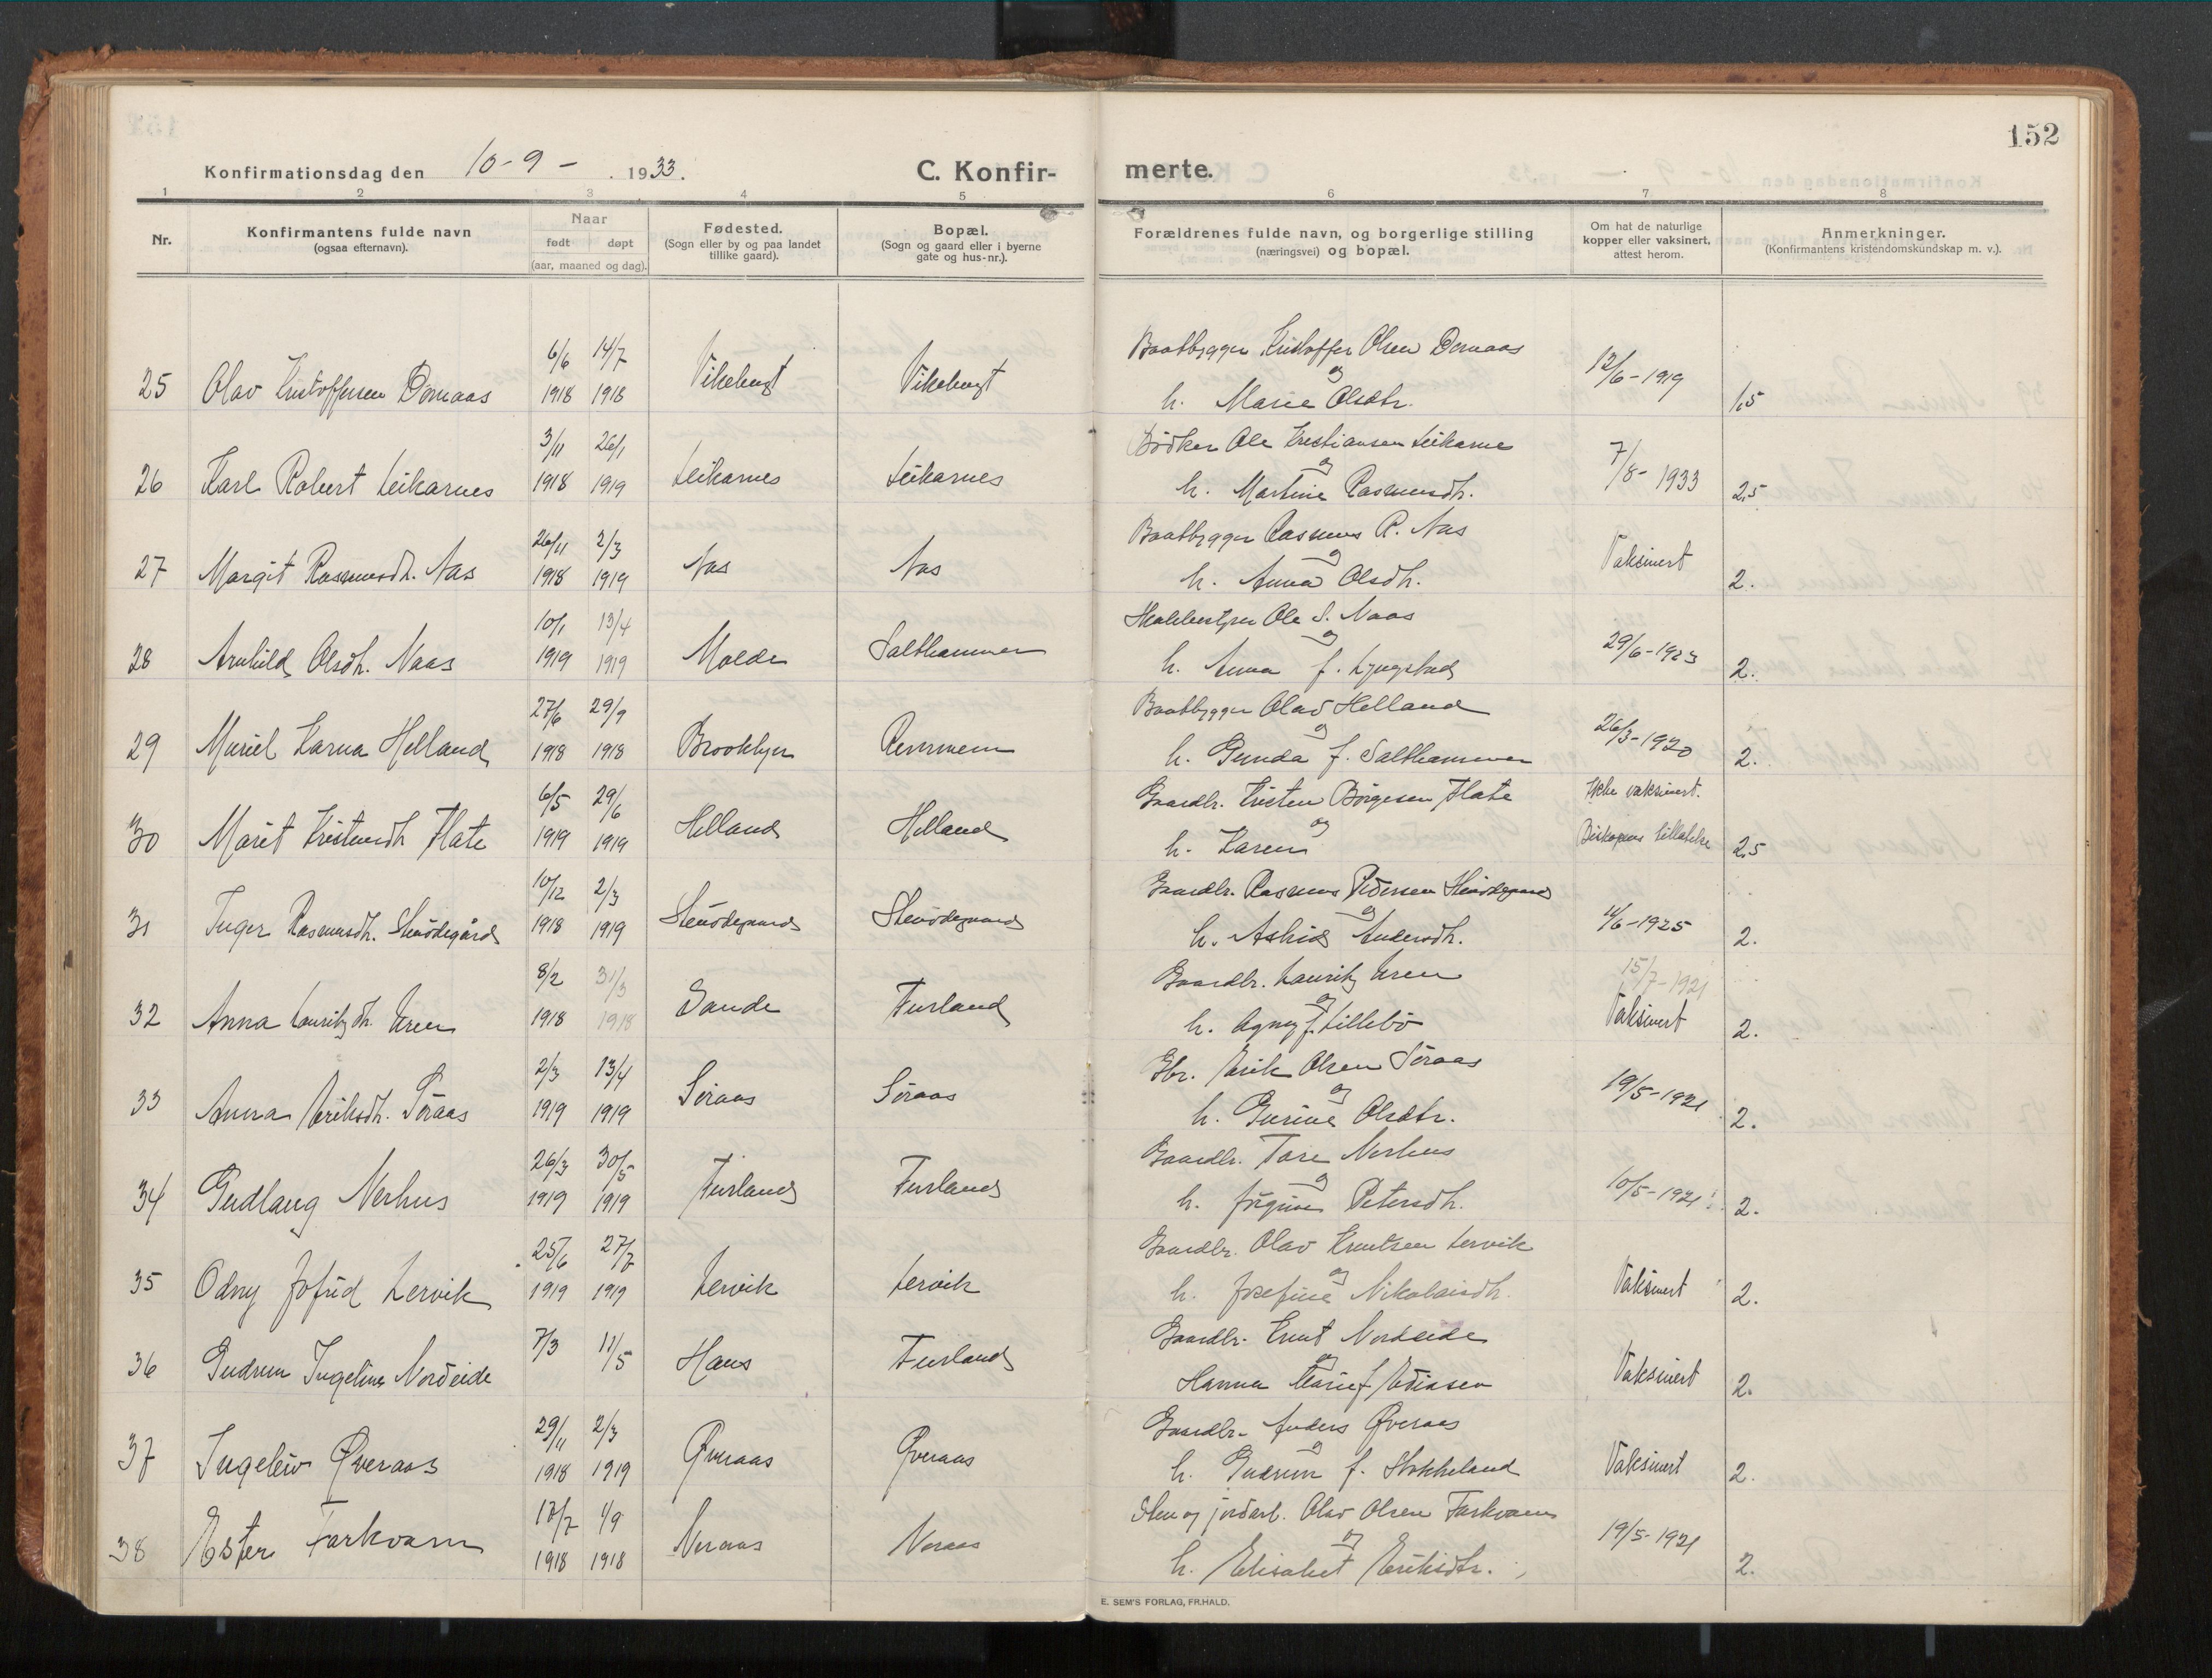 152
Konfirmationsdag den 10-9- 1933.
C. Konfir-
merte.
1 2 3 4 5 6 7 8
Nr.
Konfirmantens fulde navn
(ogsaa efternavn).
Naar
født døpt
(aar, maaned og dag).
Fødested.
(Sogn eller by og paa landet
tillike gaard).
Bopæl.
(Sogn og gaard eller i byerne
gate og hus-nr.).
Forældrenes fulde navn, og borgerlige stilling
(næringsvei) og bopæl.
Om hat de naturlige
kopper eller vaksinert,
attest herom.
Anmerkninger.
(Konfirmantens kristendomskundskap m. v.).
6/6 14/7 Baatbygger Kristoffer Olsen Domaas
25 Olav Kristoffersen Domaas 1918 1918 Vikebugt Vikebugt og 12/6-1919
h. Marie Olsdtr. 1,5
3/11 26/1 Bødker Ole Kristiansen Leikarnes
26 Karl Robert Leikarnes 1918 1919 Leikarnes Leikarnes og 7/8-1933
h. Martine Rasmusdtr. 2,5
26/11 2/3 Baatbygger Rasmus R. Aas
27 Margit Rasmusdtr. Aas 1918 1919 Aas Aas og Vaksinert
h. Anna Olsdtr. 2.
10/1 13/4 Ole S. Naas
28 Arnhild Olsdtr. Naas 1919 1919 Molde Salthammer og 29/6-1923
h. Anna f. Lyngstad 2.
27/6 29/9 Baatbygger Olav Helland
29 Muriel Karna Helland 1918 1918 Brooklyn Remmem og 26/3-1920
h. Gunda f. Salthammer 2.
6/5 29/6 Gaardbr. Kristen Børgesen Flate Ikke vaksinert.
30 Marit Kristendtr Flate 1919 1919 Helland Helland og Biskopens tillatelse
h. Karen 2,5
10/12 2/3 Gaardbr. Rasmus Pedersen Stenødegaard
31 Inger Rasmusdtr. Stenødegård 1918 1919 Stenødegaard Stenødegaard og 4/6-1925
h. Astrid Andersdtr. 2.
8/2 31/3 Gaardbr. Lauritz Uren 15/7-1921
32 Anna Lauritzdtr. Uren 1918 1918 Sande Furland og
h. Agnes f. Lillebø Vaksinert 2.
2/3 13/4 Gbr. Erik Olsen Søraas
33 Anna Eriksdtr. Søraas 1919 1919 Søraas Søraas og 19/5-1921
h. Gurine Olsdtr. 2.
26/3 30/5 Gaardbr. Tore Nerhus
34 Gudlaug Nerhus 1919 1919 Furland Furland og 10/5-1921
h. Jørgine Petersdtr. 2.
25/6 27/7 Gaardbr. Olav Knutsen Lervik
35 Odny Jofrid Lervik 1919 1919 Lervik Lervik og Vaksinert
h. Josefine Nikolaisdtr. 2.
7/3 11/5 Gaardbr. Knut Nordeide
36 Gudrun Ingeline Nordeide Hans Furland og Vaksinert
Hanna Marie f. Ediasen 2.
29/11 2/3 Gaardbr. Anders Øveraas
37 Ingeleiv Øveraas 1918 1919 Øveraas Øveraas og Vaksinert
h. Gudrun f. Stokkeland 2.
17/7 1/9 Sten og jordarb. Olav Olsen Farkvam
38 Ester Farkvam 1918 1918 Neraas Neraas og 19/5-1921
h. Elisabet Eriksdtr. 2.
E. SEM'S FORLAG, FR.HALD.